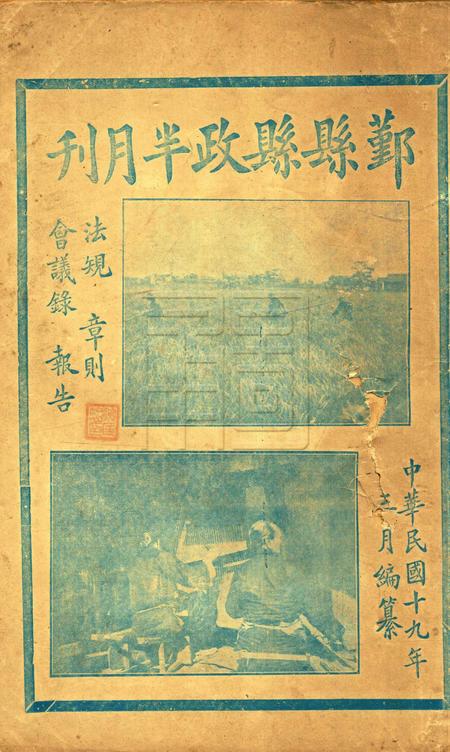 鄞縣縣政半月刊
法規 章則
會議錄 報告
中華民國十九年
月編纂